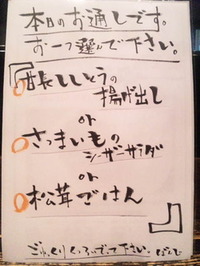 本日のお通しです。
お一つ選んで下さい。
『甘長ししとうの
揚げ出し
or
さつまいもの
シーザーサラダ
or
松茸ごはん
』
ごゆっくりくつろいでって下さい。